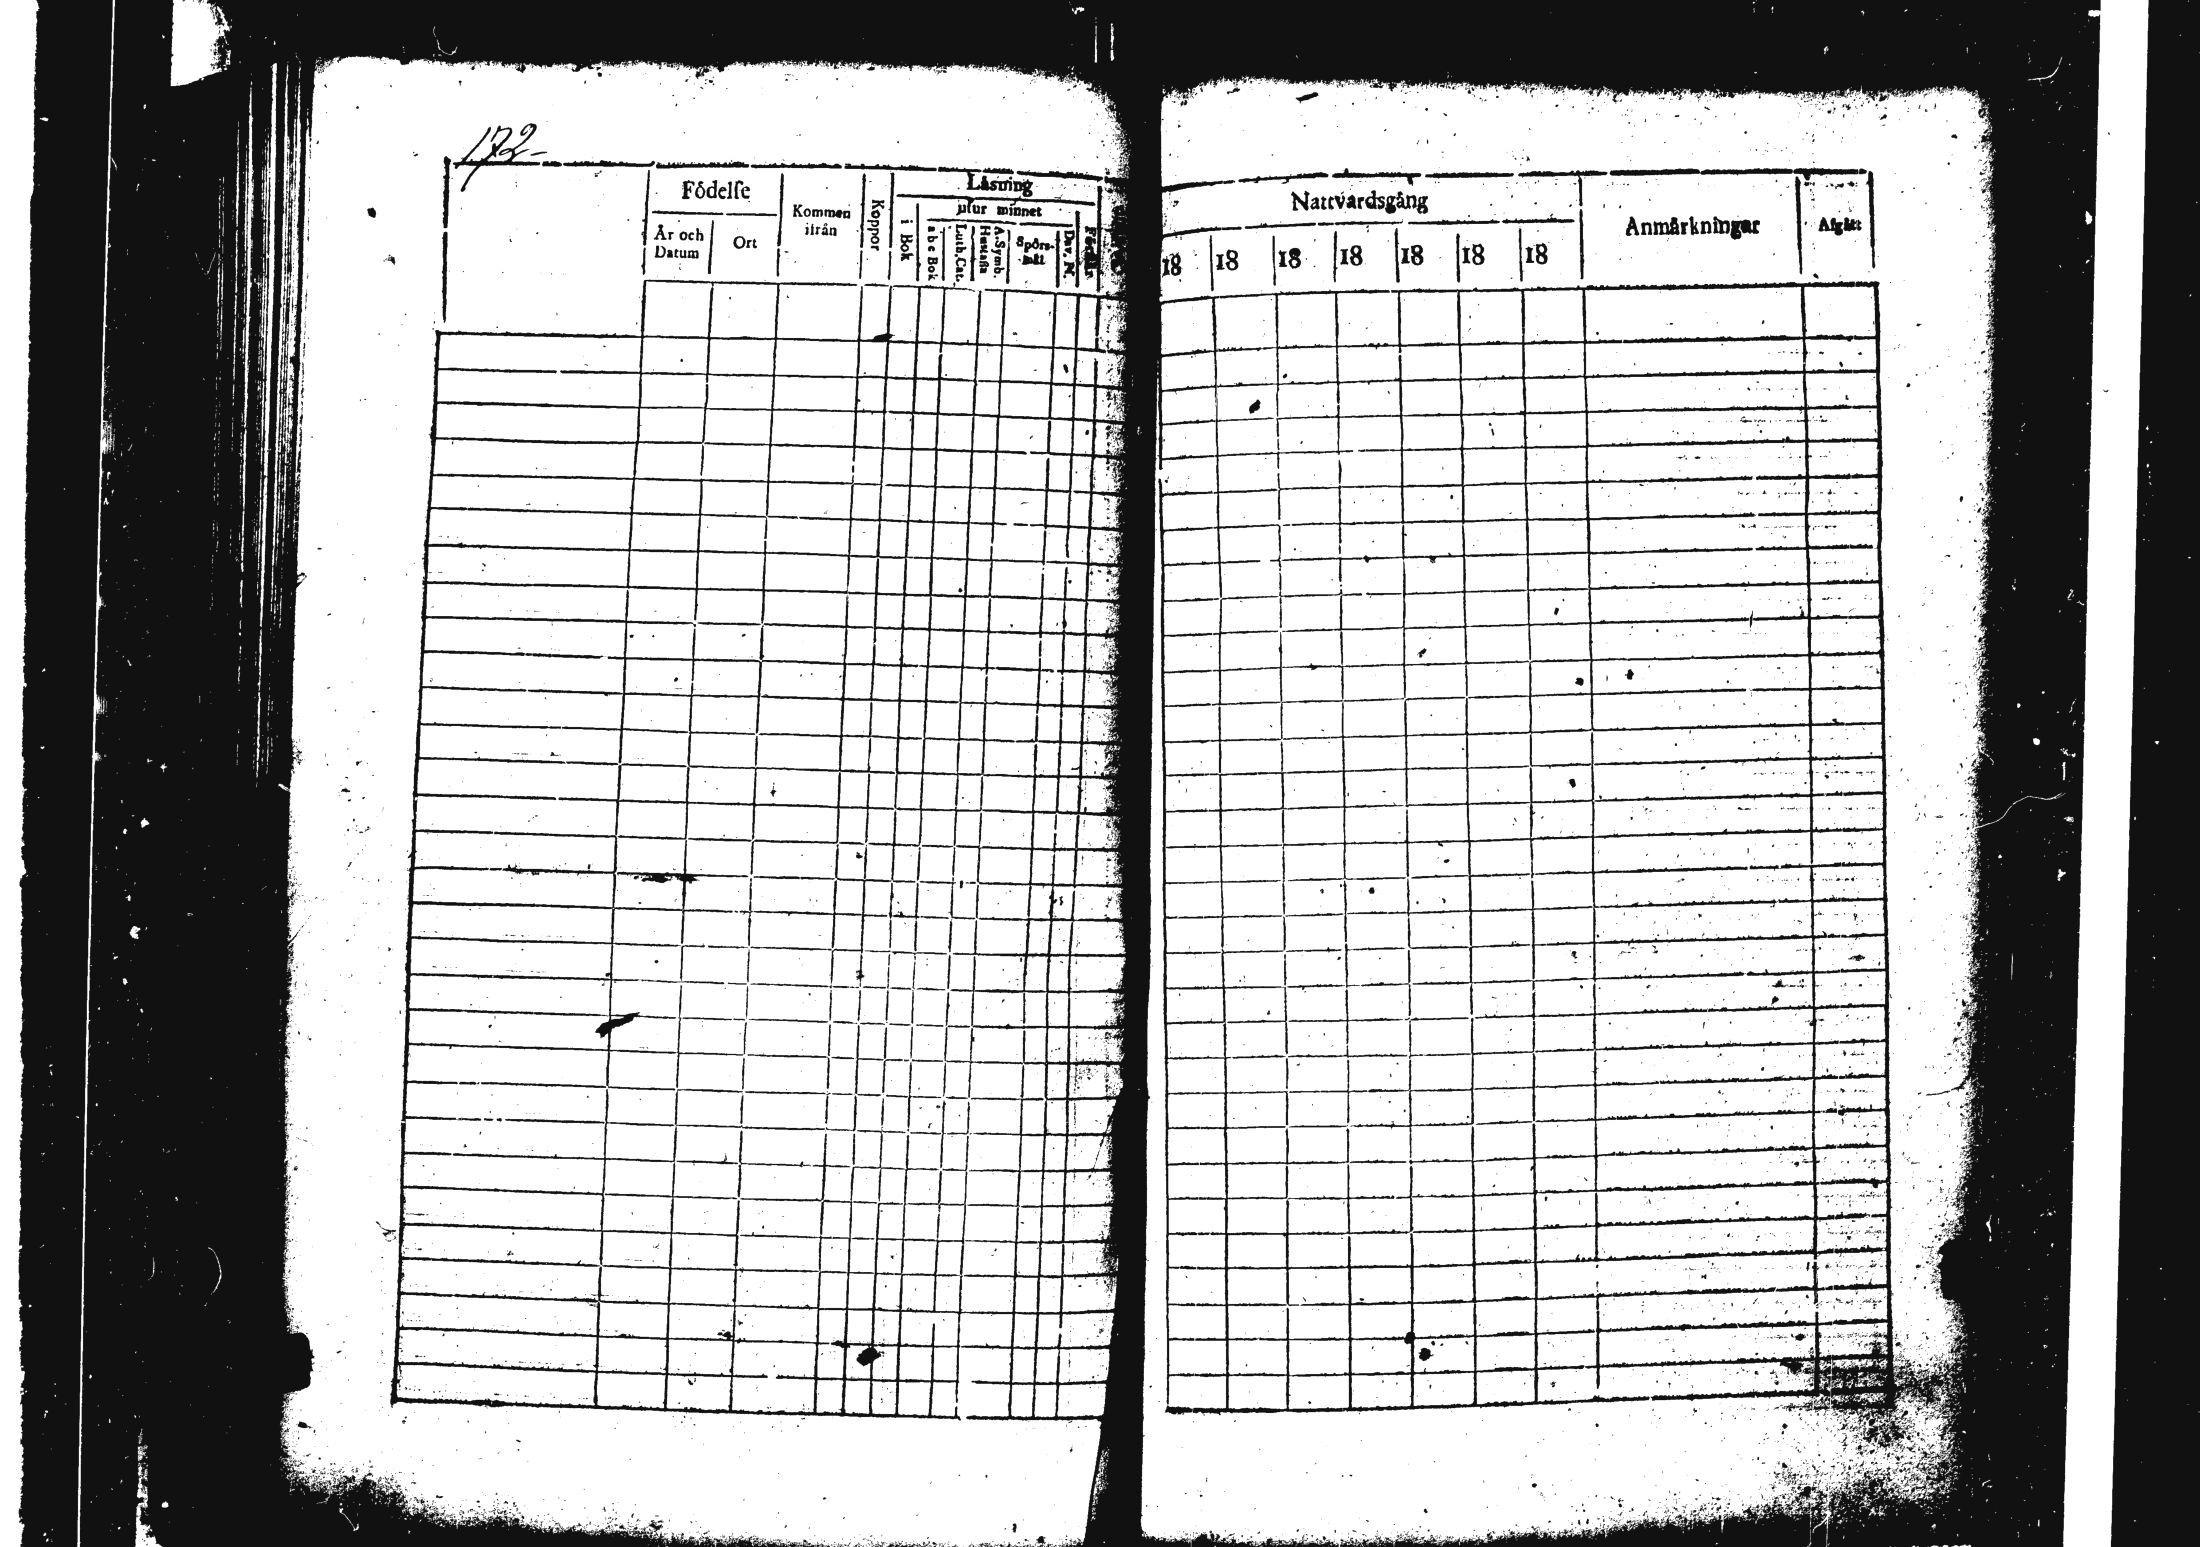 172-
Födelſe
År och Datum
Ort
Kommen
ifrån
Koppor
Läsning
i Bok
utur minnet
a b c Bok
Luth. Cat.
A. Symb.
Hustafla
Spörs-
mål
Dav. Ps.
Förstår
Nattvardsgång
18 18 18 18 18 18 18
Anmärkningar
Afgått